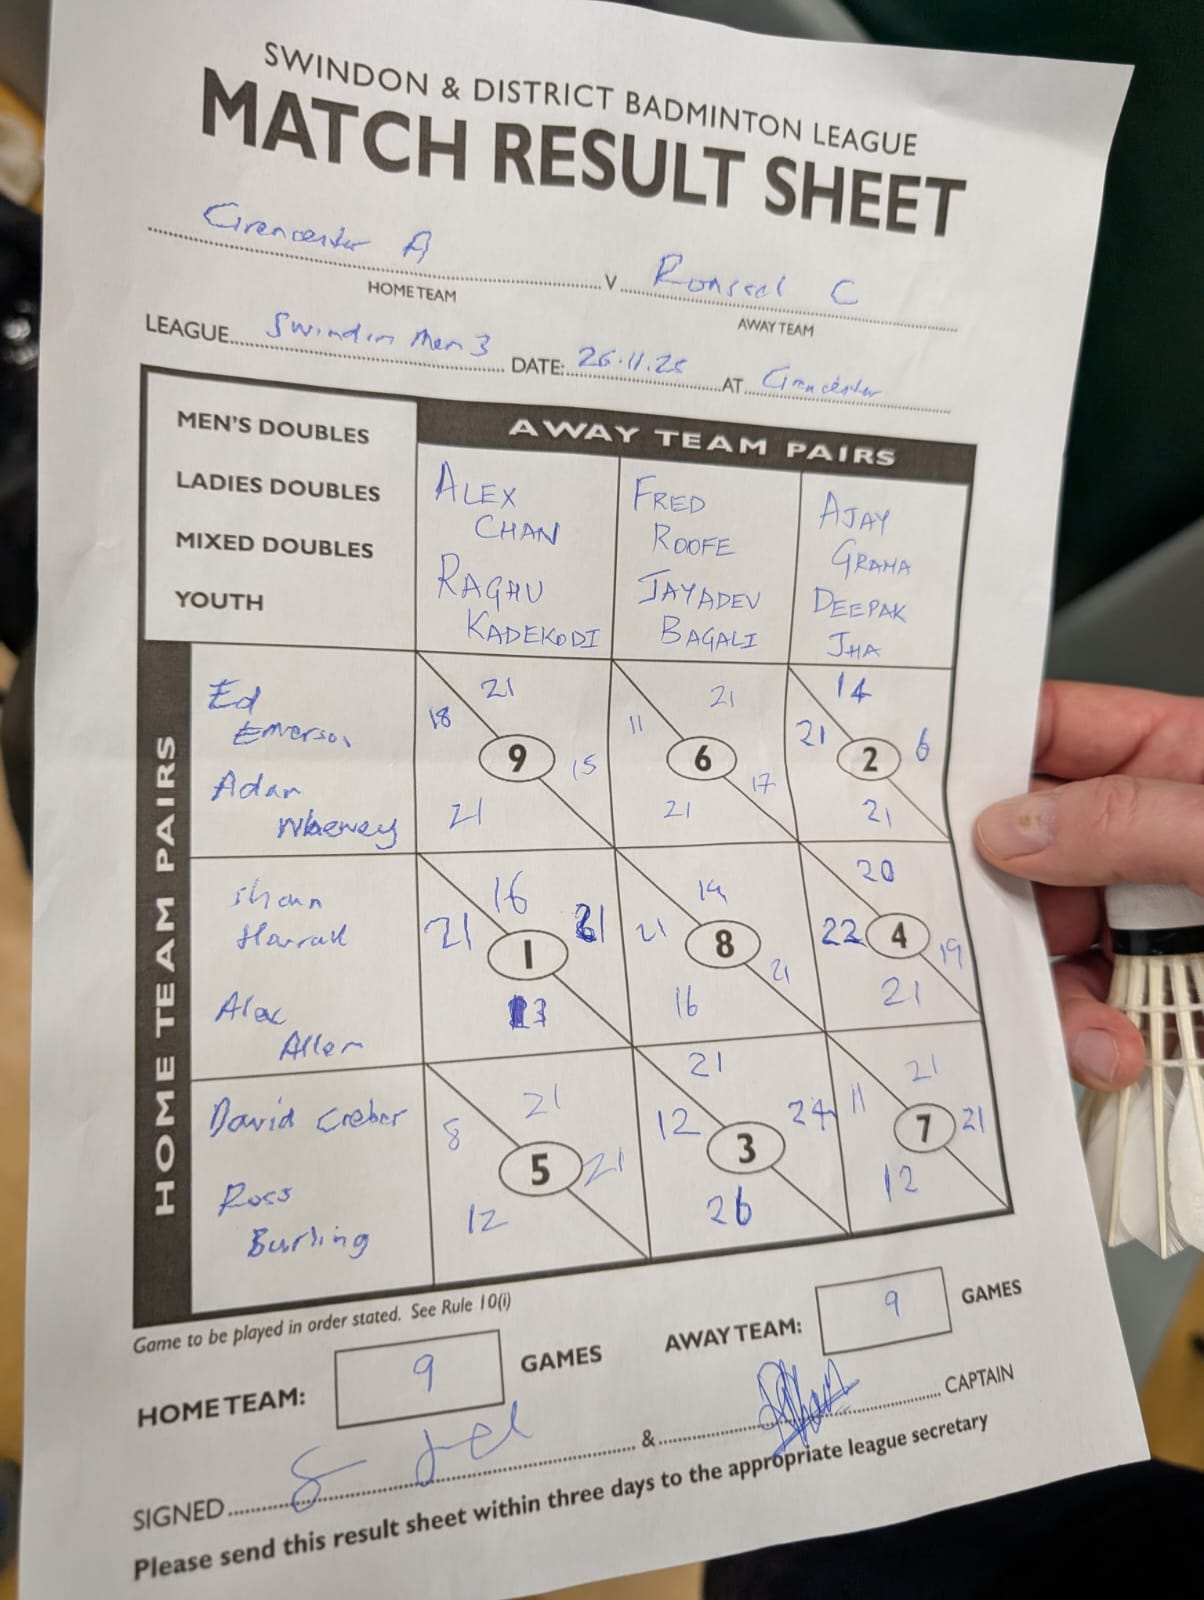 SWINDON & DISTRICT BADMINTON LEAGUE
MATCH RESULT SHEET
Cirencester A V Ronseal C
HOME TEAM AWAY TEAM
LEAGUE Swindon Men 3 DATE: 26.11.25 AT Cirencester
MEN'S DOUBLES
LADIES DOUBLES
MIXED DOUBLES
YOUTH
AWAY TEAM PAIRS
ALEX CHAN
RAGHU KADEKODI
FRED ROOFE
JAYADEV BAGALI
AJAY GRAMA
DEEPAK JHA
HOME TEAM PAIRS
Ed Emerson
Adam
21 18 9 15 21
21 11 6 17 21
14 21 2 6 21
Shaun
Alex Allen
16 21 1 21 13
19 21 8 21 16
20 22 4 19 21
David Creber
Ross Burling
21 8 5 21 12
21 12 3 24 26
21 11 7 21 12
Game to be played in order stated. See Rule 10(i)
HOME TEAM: 9 GAMES AWAY TEAM: 9 GAMES
SIGNED & CAPTAIN
Please send this result sheet within three days to the appropriate league secretary